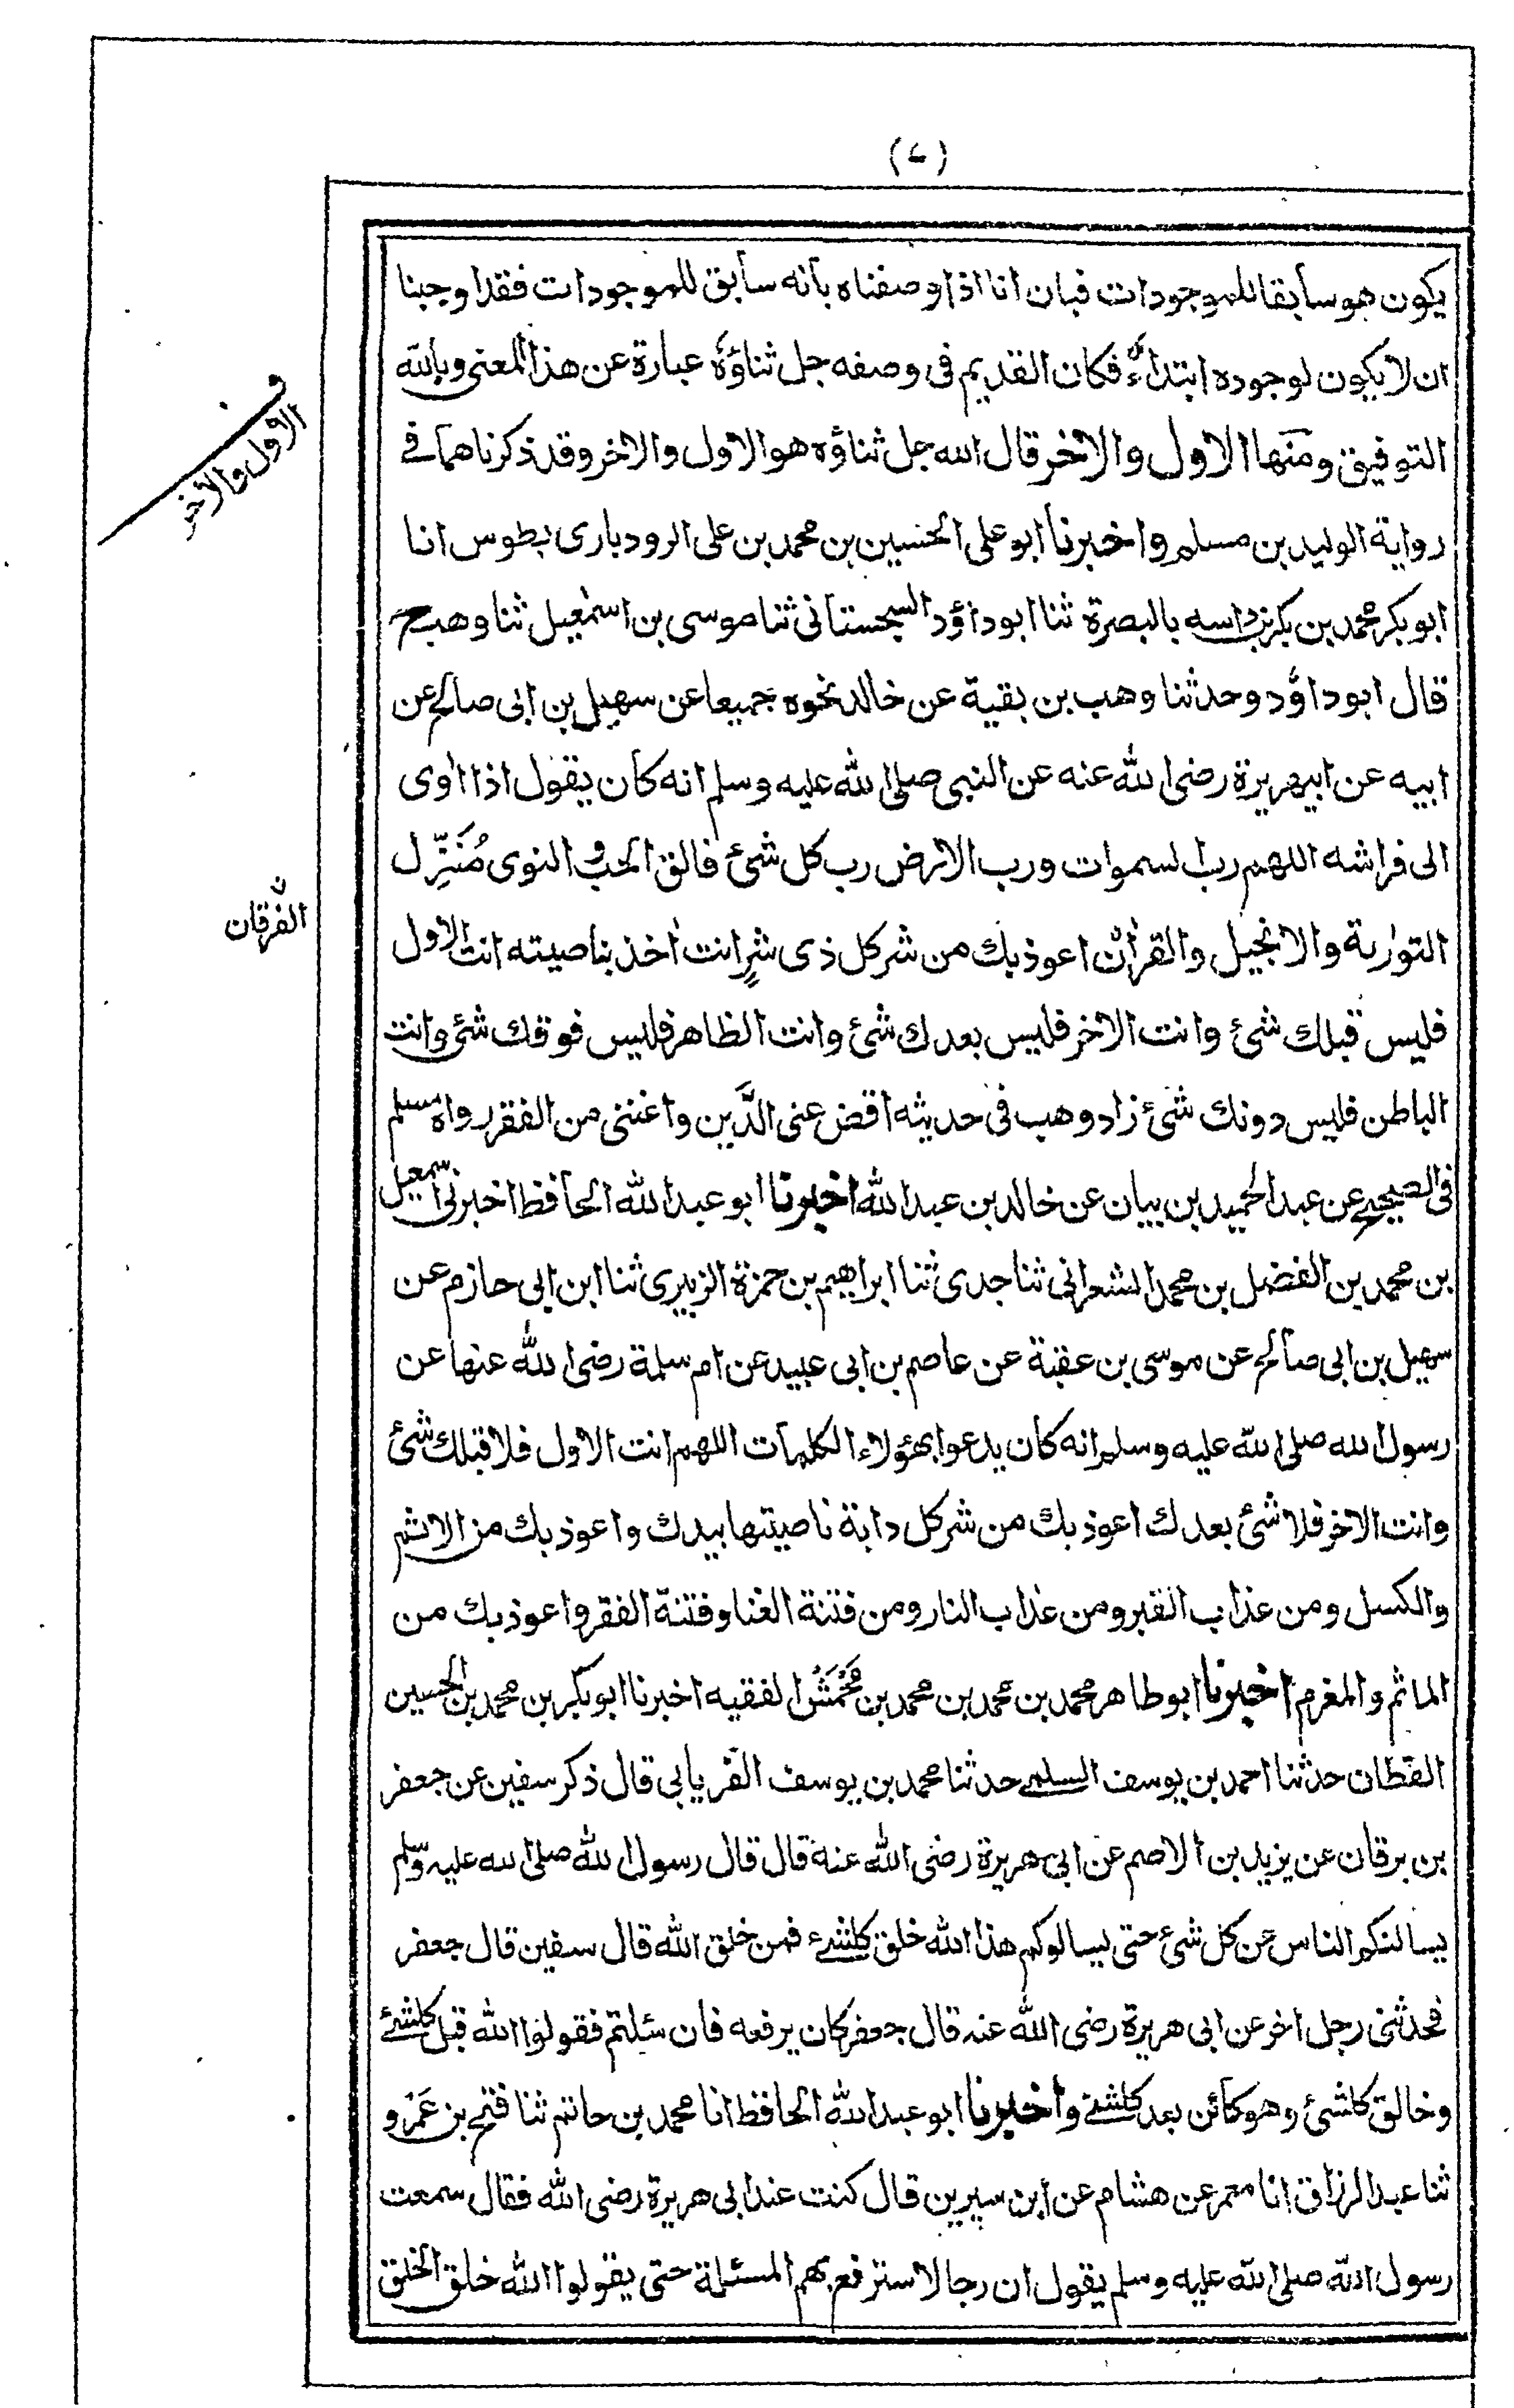 (۷)
يكون هو سابقا للموجودات فبان انا اذا وصفناه بانه سابق للموجودات فقد اوجبنا
ان لا يكون لوجوده ابتداءٌ فكان القديم فى وصفه جل ثناؤهٗ عبارة عن هذا المعنى وبالله
التوفيق ومنها الاول والاخر قال الله جل ثناؤه هو الاول والاخر وقد ذكرناهما فے
و
الاول والاخر
رواية الوليد بن مسلم واخبرنا ابو على الحسين بن محمد بن على الرودبارى بطوس انا
ابو بكر محمد بن بكر بن داسه بالبصرة ثنا ابو داؤد السجستانى ثنا موسى بن اسمٰعيل ثنا وهب ح
قال ابو داؤد وحدثنا وهب بن بقية عن خالد نحوه جميعا عن سهيل بن ابى صالح عن
ابيه عن ابيهريرة رضى الله عنه عن النبى صلى الله عليه وسلم انه كان يقول اذا اوى
الى فراشه اللهم رب السموات ورب الارض رب كل شئ فالق الحب والنوى مُنَزِّل
التورٰىة والانجيل والقرآن اعوذ بك من شر كل ذى شرٍ انت اٰخذ بناصيته انت الاول
الفرقان ن
فليس قبلك شئ وانت الاخر فليس بعدك شئ وانت الظاهر فليس فوقك شئ وانت
الباطن فليس دونك شئ زاد وهب فى حديثه اقض عنى الدَّين واغننى من الفقر رواه مسلم
فى الصحيح عن عبد الحميد بن بيان عن خالد بن عبد الله اخبرنا ابو عبد الله الحافظ اخبرنى اسمعيل
بن محمد بن الفضل بن محمد الشعرانى ثنا جدى ثنا ابراهيم بن حمزة الزبيرى ثنا ابن ابى حازم عن
سهيل بن ابى صالح عن موسى بن عقبة عن عاصم بن ابى عبيد عن ام سلمة رضى الله عنها عن
رسول الله صلى الله عليه وسلم انه كان يدعوا بهؤلاء الكلمات اللهم انت الاول فلا قبلك شئ
وانت الاخر فلا شئ بعدك اعوذ بك من شر كل دابة ناصيتها بيدك واعوذ بك من الاثم
والكسل ومن عذاب القبر ومن عذاب النار ومن فتنة الغنا وفتنة الفقر واعوذ بك من
الماثم والمغرم اخبرنا ابو طاهر محمد بن محمد بن محمد بن مَحْمَشُ الفقيه اخبرنا ابو بكر بن محمد بن الحسين
القطان حدثنا احمد بن يوسف السلمے حدثنا محمد بن يوسف الفريابى قال ذكر سفين عن جعفر
بن برقان عن يزيد بن الاصم عن ابى هريرة رضى الله عنه قال قال رسول الله صلى الله عليه وسلم
يسالنكم الناس عن كل شئ حتى يسالوكم هذا الله خلق كلشئ فمن خلق الله قال سفين قال جعفر
فحدثنى رجل اخر عن ابى هريرة رضى الله عنه قال جعفر كان يرفعه فان سئلتم فقولوا الله قبل كلشئ
وخالق كلشئ وهو كائن بعد كلشئ واخبرنا ابو عبد الله الحافظ انا محمد بن حاتم ثنا فتح بن عَمْرو
ثنا عبد الرزاق انا معمر عن هشام عن ابن سيرين قال كنت عند ابى هريرة رضى الله فقال سمعت
رسول الله صلى الله عليه وسلم يقول ان رجالا سترفع بهم المسئلة حتى يقولوا الله خلق الخلق